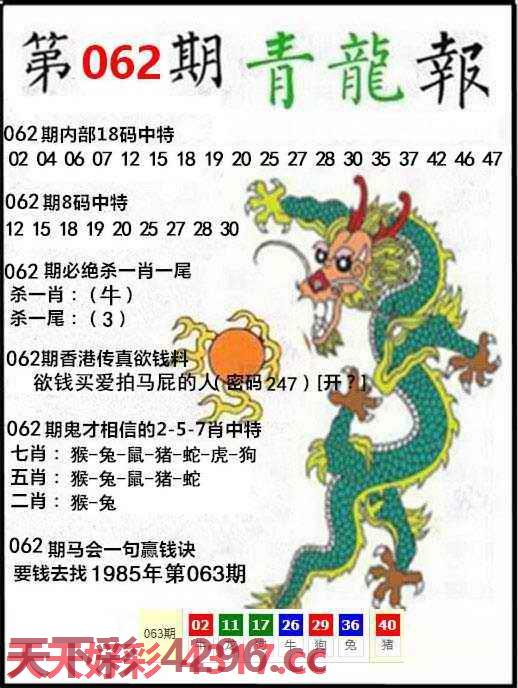 第062期青龍報
062期内部18码中特
02 04 06 07 12 15 18 19 20 25 27 28 30 35 37 42 46 47
062期8码中特
12 15 18 19 20 25 27 28 30
062期必绝杀一肖一尾
杀一肖：（牛）
杀一尾：（3）
062期香港传真欲钱料
欲钱买爱拍马屁的人（密码247）[开?]
062期鬼才相信的2-5-7肖中特
七肖：猴-兔-鼠-猪-蛇-虎-狗
五肖：猴-兔-鼠-猪-蛇
二肖：猴-兔
062期马会一句赢钱诀
要钱去找1985年第063期
063期 02 11 17 26 29 36 40
龙 牛 狗 兔 猪